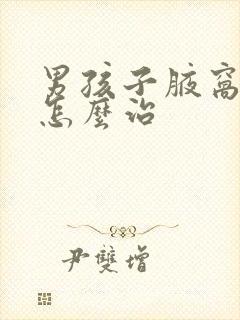 男孩子腋窩
怎麼治
尹雙增